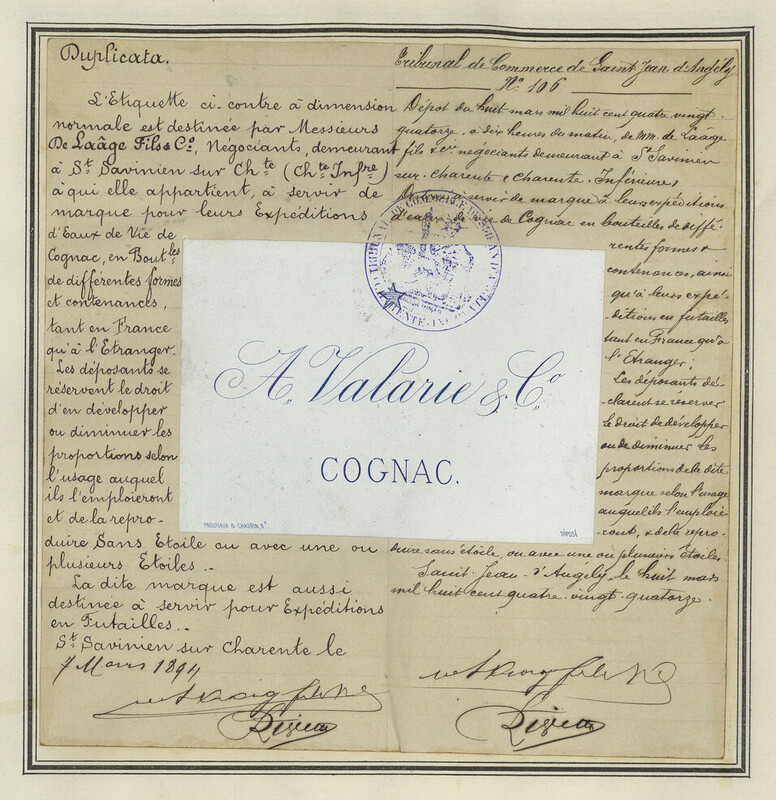 Duplicata.
L'Etiquette ci-contre à dimension
normale est destinée par Messieurs
De Laâge Fils & Co, Négociants, demeurant
à St Savinien sur Chte (Chte Infre)
à qui elle appartient, à servir de
marque pour leurs Expéditions
d'Eaux de Vie de
Cognac, en Boutles
de différentes formes
et contenances,
tant en France
qu'à l'Etranger.
Les déposants se
réservent le droit
d'en développer
ou diminuer les
proportions selon
l'usage auquel
ils l'emploieront
et de la repro-
duire Sans Etoile ou avec une ou
plusieurs Etoiles.-
La dite marque est aussi
destinée à servir pour Expéditions
en Futailles.-
St Savinien sur Charente le
7 Mars 1894
Tribunal de Commerce de Saint Jean d'Angély
No 106
Dépôt du huit mars mil huit cent quatre vingt
quatorze à dix heures du matin, de MM. de Laâge
fils & Co négociants demeurant à St Savinien
sur Charente (Charente Inférieure)
servir de marque à leurs expéditions
d'eaux de vie de Cognac en bouteilles de diffé-
rentes formes &
contenances, ainsi
qu'à leurs expé-
ditions en futailles
tant en France qu'à
l'Etranger;
Les déposants dé-
clarent se réserver
le droit de développer
ou de diminuer les
proportions de la dite
marque selon l'usage
auquel ils l'emploie-
ront, & de la repro-
duire sans étoile, ou avec une ou plusieurs étoiles
Saint-Jean-d'Angély, le huit mars
mil huit cent quatre-vingt-quatorze.
A. Valarie & Co
COGNAC.
DÉPOSÉ